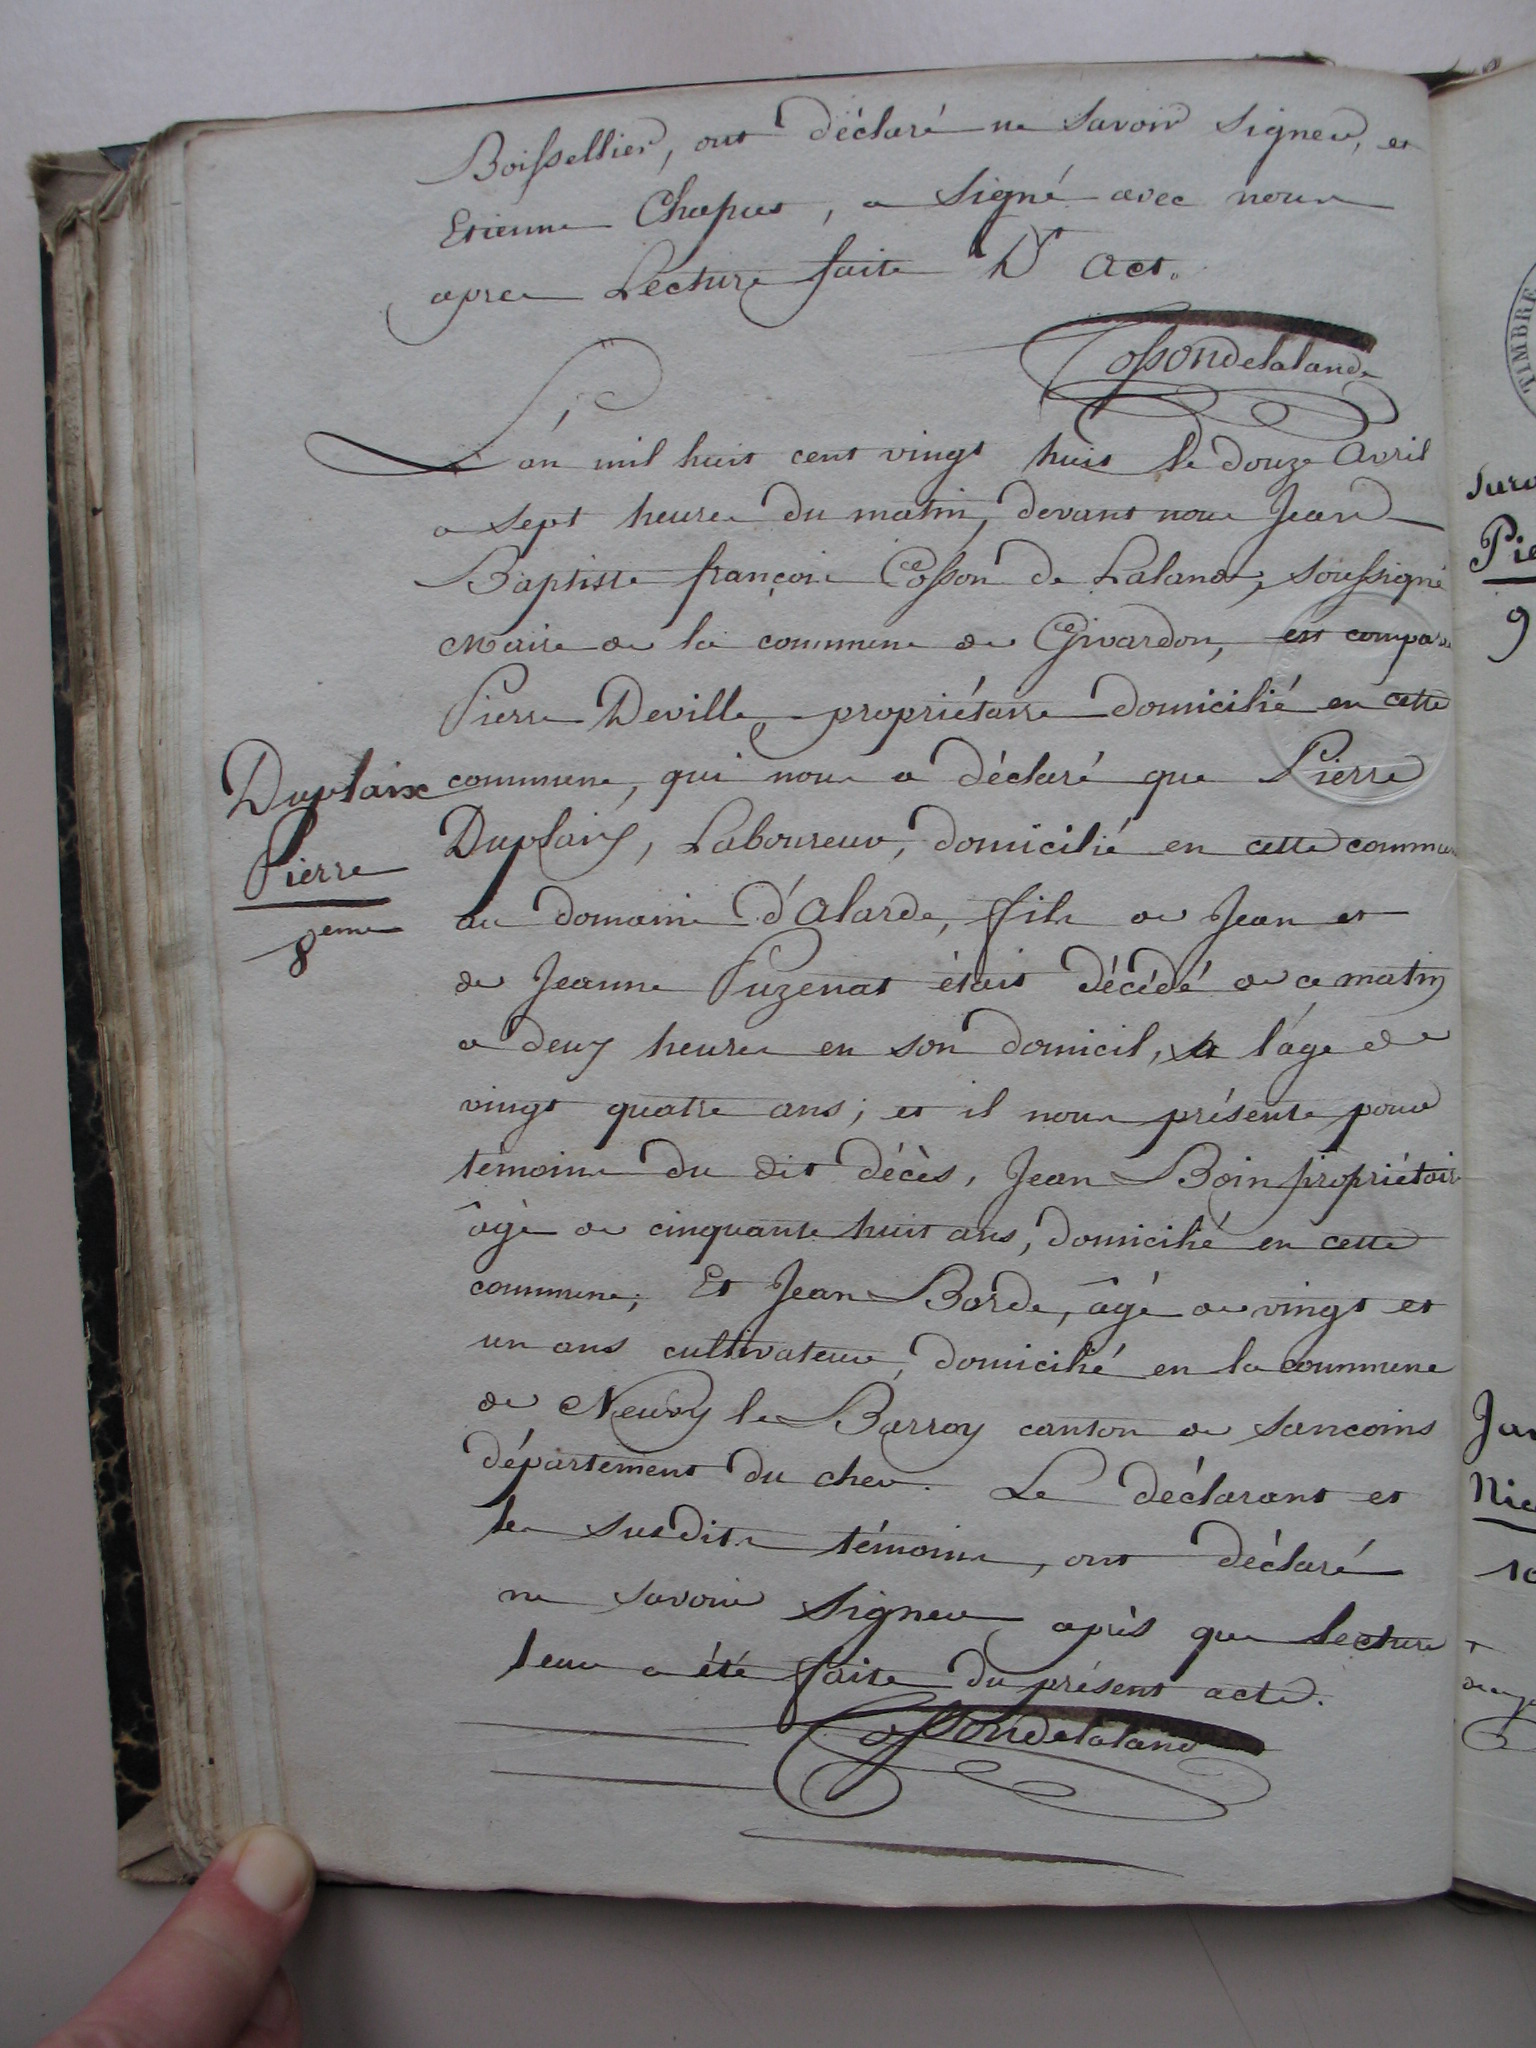 Boissellier, ont déclaré ne savoir signer, et
Etienne Chapus, a signé avec nous
apres Lecture faite Dt Act.
Cossondelalande
L'an mil huit cent vingt huit le douze Avril
a sept heures du matin, devant nous Jean
Baptiste françois Cosson de Lalande, soussigné
Maire de la commune de Givardon, est comparu
Pierre Deville, propriétaire domicilié en cette
commune, qui nous a déclaré que Pierre
Duplaix, Laboureur, domicilié en cette commune
au domaine d'Alarde, fils de Jean et
de Jeanne Puzenat était décédé de ce matin
a deux heures en son domicil, a l'age de
vingt quatre ans; et il nous présente pour
témoins du dit décès, Jean Boin propriétaire
âgé de cinquante huit ans, domicilié en cette
commune; Et Jean Borde, âgé de vingt et
un ans cultivateur, domicilié en la commune
de Neuvy le Barroy canton de Sancoins
département du cher. Le déclarant et
les susdits témoins, ont déclaré
ne savoir signer, après que lecture
leur a été faite du présent acte.
Cossondelalande
Duplaix
Pierre
8eme
TIMBRE
Pie
9
Jar
Nic
10